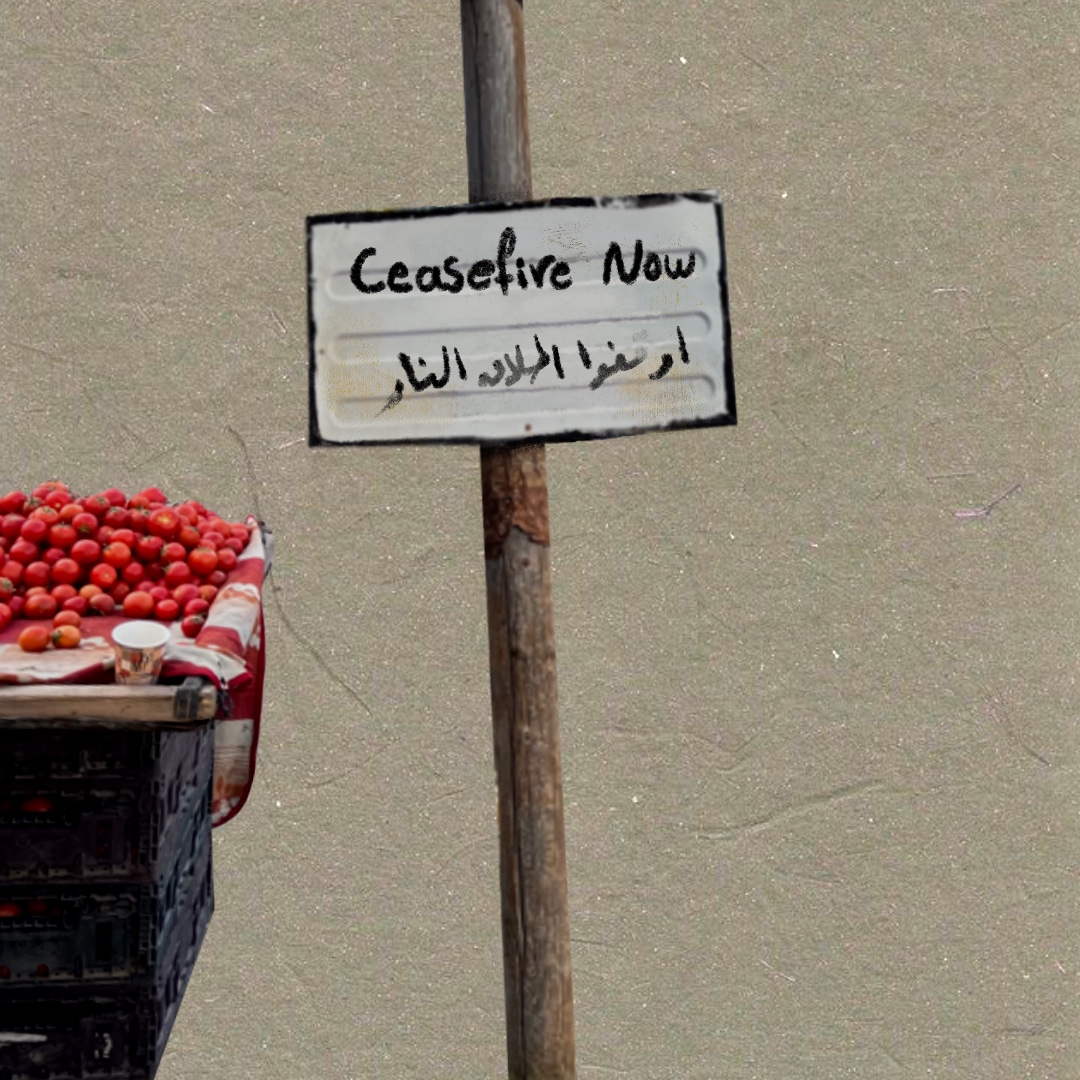 Ceasefire Now
اوقفوا اطلاق النار